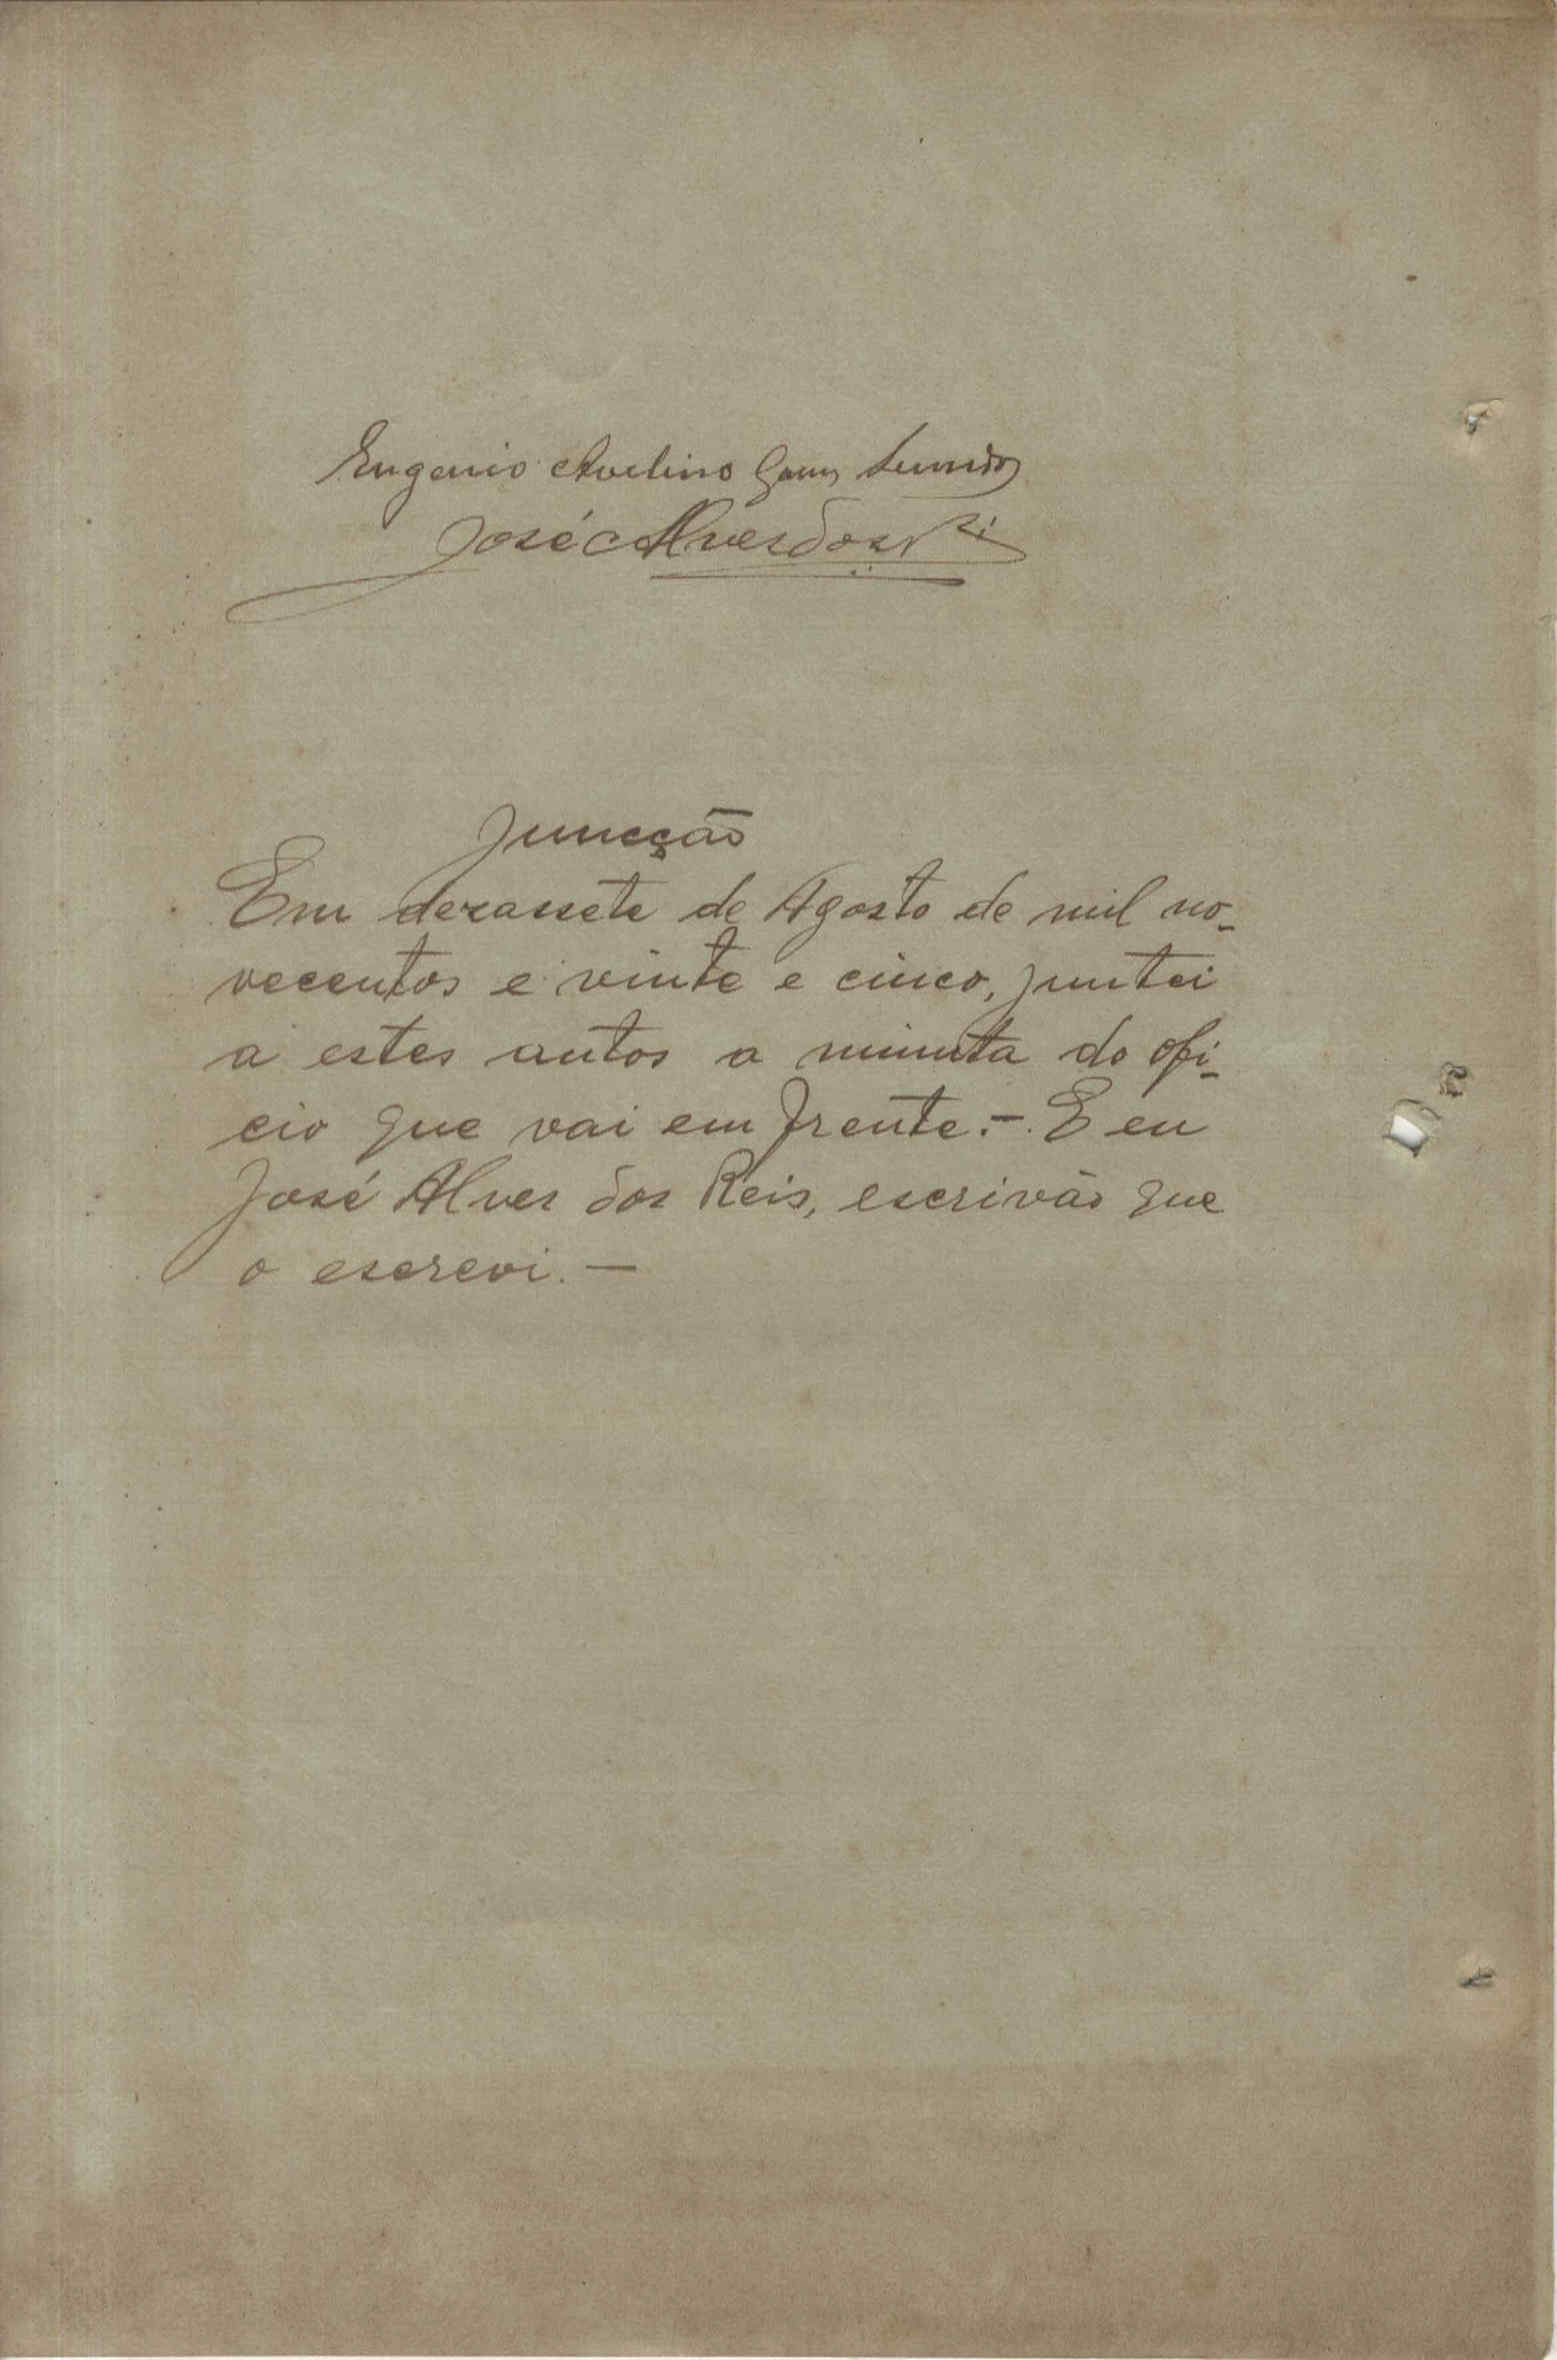 Eugenio Avelino
José Alves dos Reis
Juncção
Em dezassete de Agosto de mil no-
vecentos e vinte e cinco, juntei
a estes autos a minuta do ofi-
cio que vai em frente. -. E eu
José Alves dos Reis, escrivão que
o escrevi. -